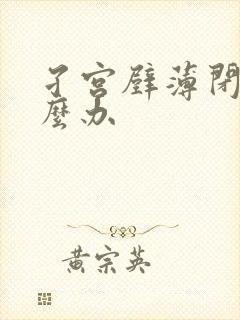 子宫壁薄閉
麼办
黄宗英